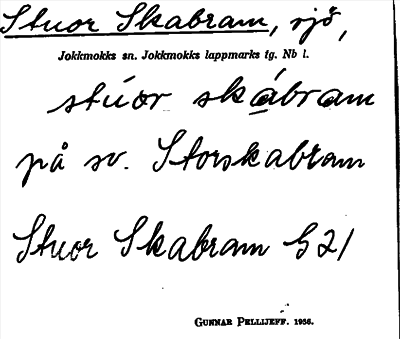 Stuor Skabram, sjö,
Jokkmokks sn. Jokkmokks lappmarks tg. Nb l.
stúor skábram
på sv. Storskabram
Stuor Skabram G 21
GUNNAR PELLIJEFF. 1956.